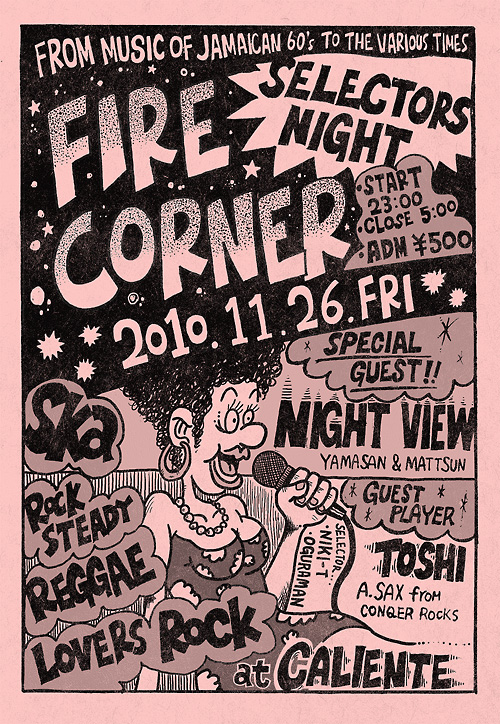 FROM MUSIC OF JAMAICAN 60's TO THE VARIOUS TIMES
FIRE
CORNER
SELECTORS
NIGHT
•START
23:00
•CLOSE 5:00
•ADM ¥500
2010.11.26.FRI
SPECIAL
GUEST!!
NIGHT VIEW
YAMASAN & MATTSUN
GUEST
PLAYER
TOSHI
A.SAX from
CONQER ROCKS
Ska
ROCK
STEADY
REGGAE
LOVERS ROCK
SELECTOR...
•NIKI-T
•OGURAMAN
at CALIENTE